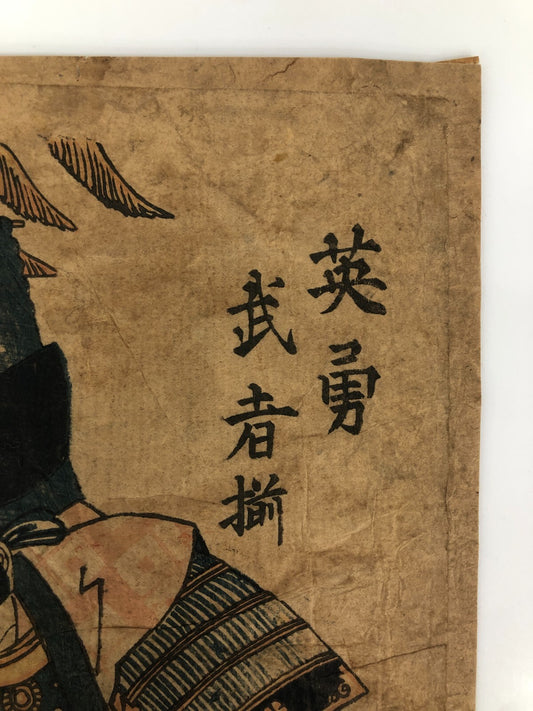 英勇
武者揃